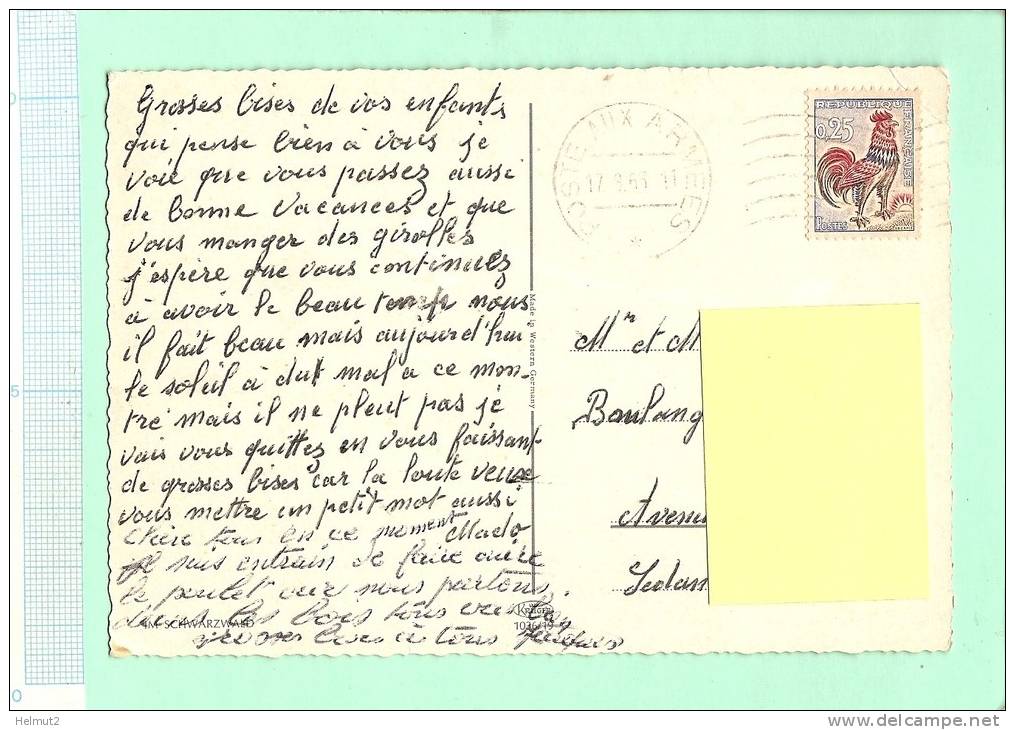 Grosses bises de vos enfants
qui pense bien à vous je
voie que vous passez aussi
de bonne vacances et que
vous manger des girolles
j'espère que vous continuez
à avoir le beau temp nous
il fait beau mais aujourd'hui
le soleil à dut mal a ce mon-
tré mais il ne pleut pas je
vais vous quittez en vous faissant
de grosses bises car la loute veux
vous mettre un petit mot aussi
Chère tous en ce moment
Je suis entrain de faire cuire
le poulet car nous partons
dans les bois tous
à tous
IM SCHWARZWALD
KRÜGER
Made in Western Germany
POSTE AUX ARMÉES
REPUBLIQUE FRANÇAISE
0,25
POSTES
Mr et M
Boulang
Avenu
Sedan
5
0
Helmut2
http://www.delcampe.net